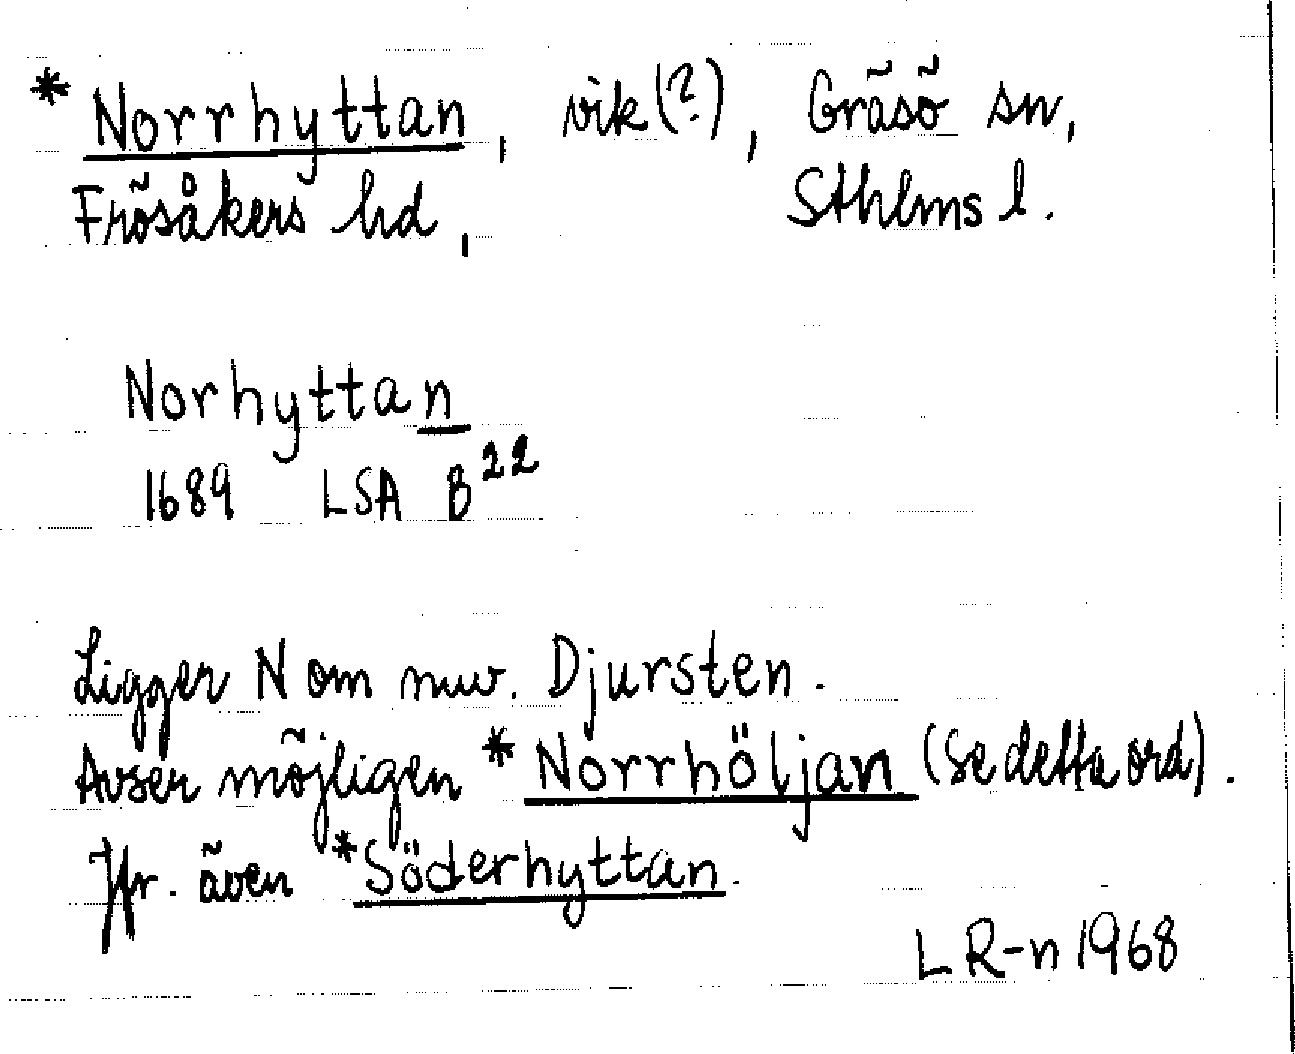 * Norrhyttan, vik (?), Gräsö sn,
Frösåkers hd, Sthlms l.
Norhyttan
1689 LSA B22
Ligger N om nuv. Djursten.
Avser möjligen * Norrhöljan (se detta ord).
Jfr. även *Söderhyttan.
LR-n 1968